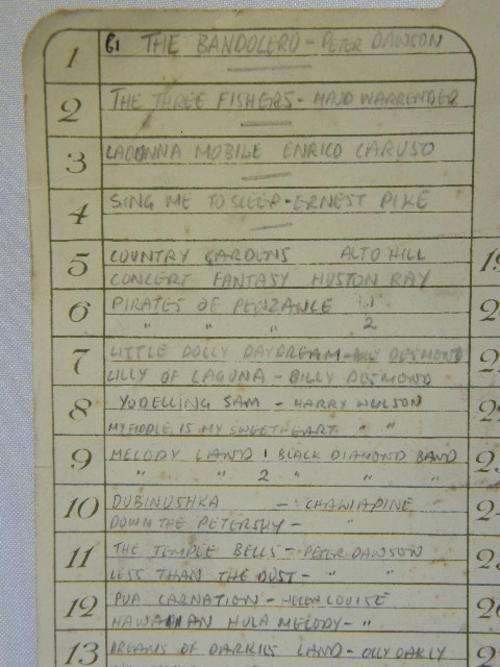 1 THE BANDOLERO - PETER DAWSON
2 THE THREE FISHERS - HAJO WARRENDER
3 LADONNA MOBILE ENRICO CARUSO
4 SING ME TO SLEEP - ERNEST PIKE
5 COUNTRY GARDENS ALTO HILL
CONCERT FANTASY HUSTON RAY
6 PIRATES OF PENZANCE 1
" " " 2
7 LITTLE DOLLY DAYDREAM - BILLY DESMOND
LILLY OF LAGUNA - BILLY DESMOND
8 YODELLING SAM - HARRY WULSON
MY FIDDLE IS MY SWEETHEART " "
9 MELODY LAND 1 BLACK DIAMOND BAND
" " 2 " " "
10 DUBINUSHKA - CHAWIAPINE
DOWN THE PETERSKY - "
11 THE TEMPLE BELLS - PETER DAWSON
LESS THAN THE DUST - " "
12 PUA CARNATION - HELEN LOUISE
HAWAIIAN HULA MELODY - "
13 DREAMS OF DARKIES LAND - OLLY OAKLY